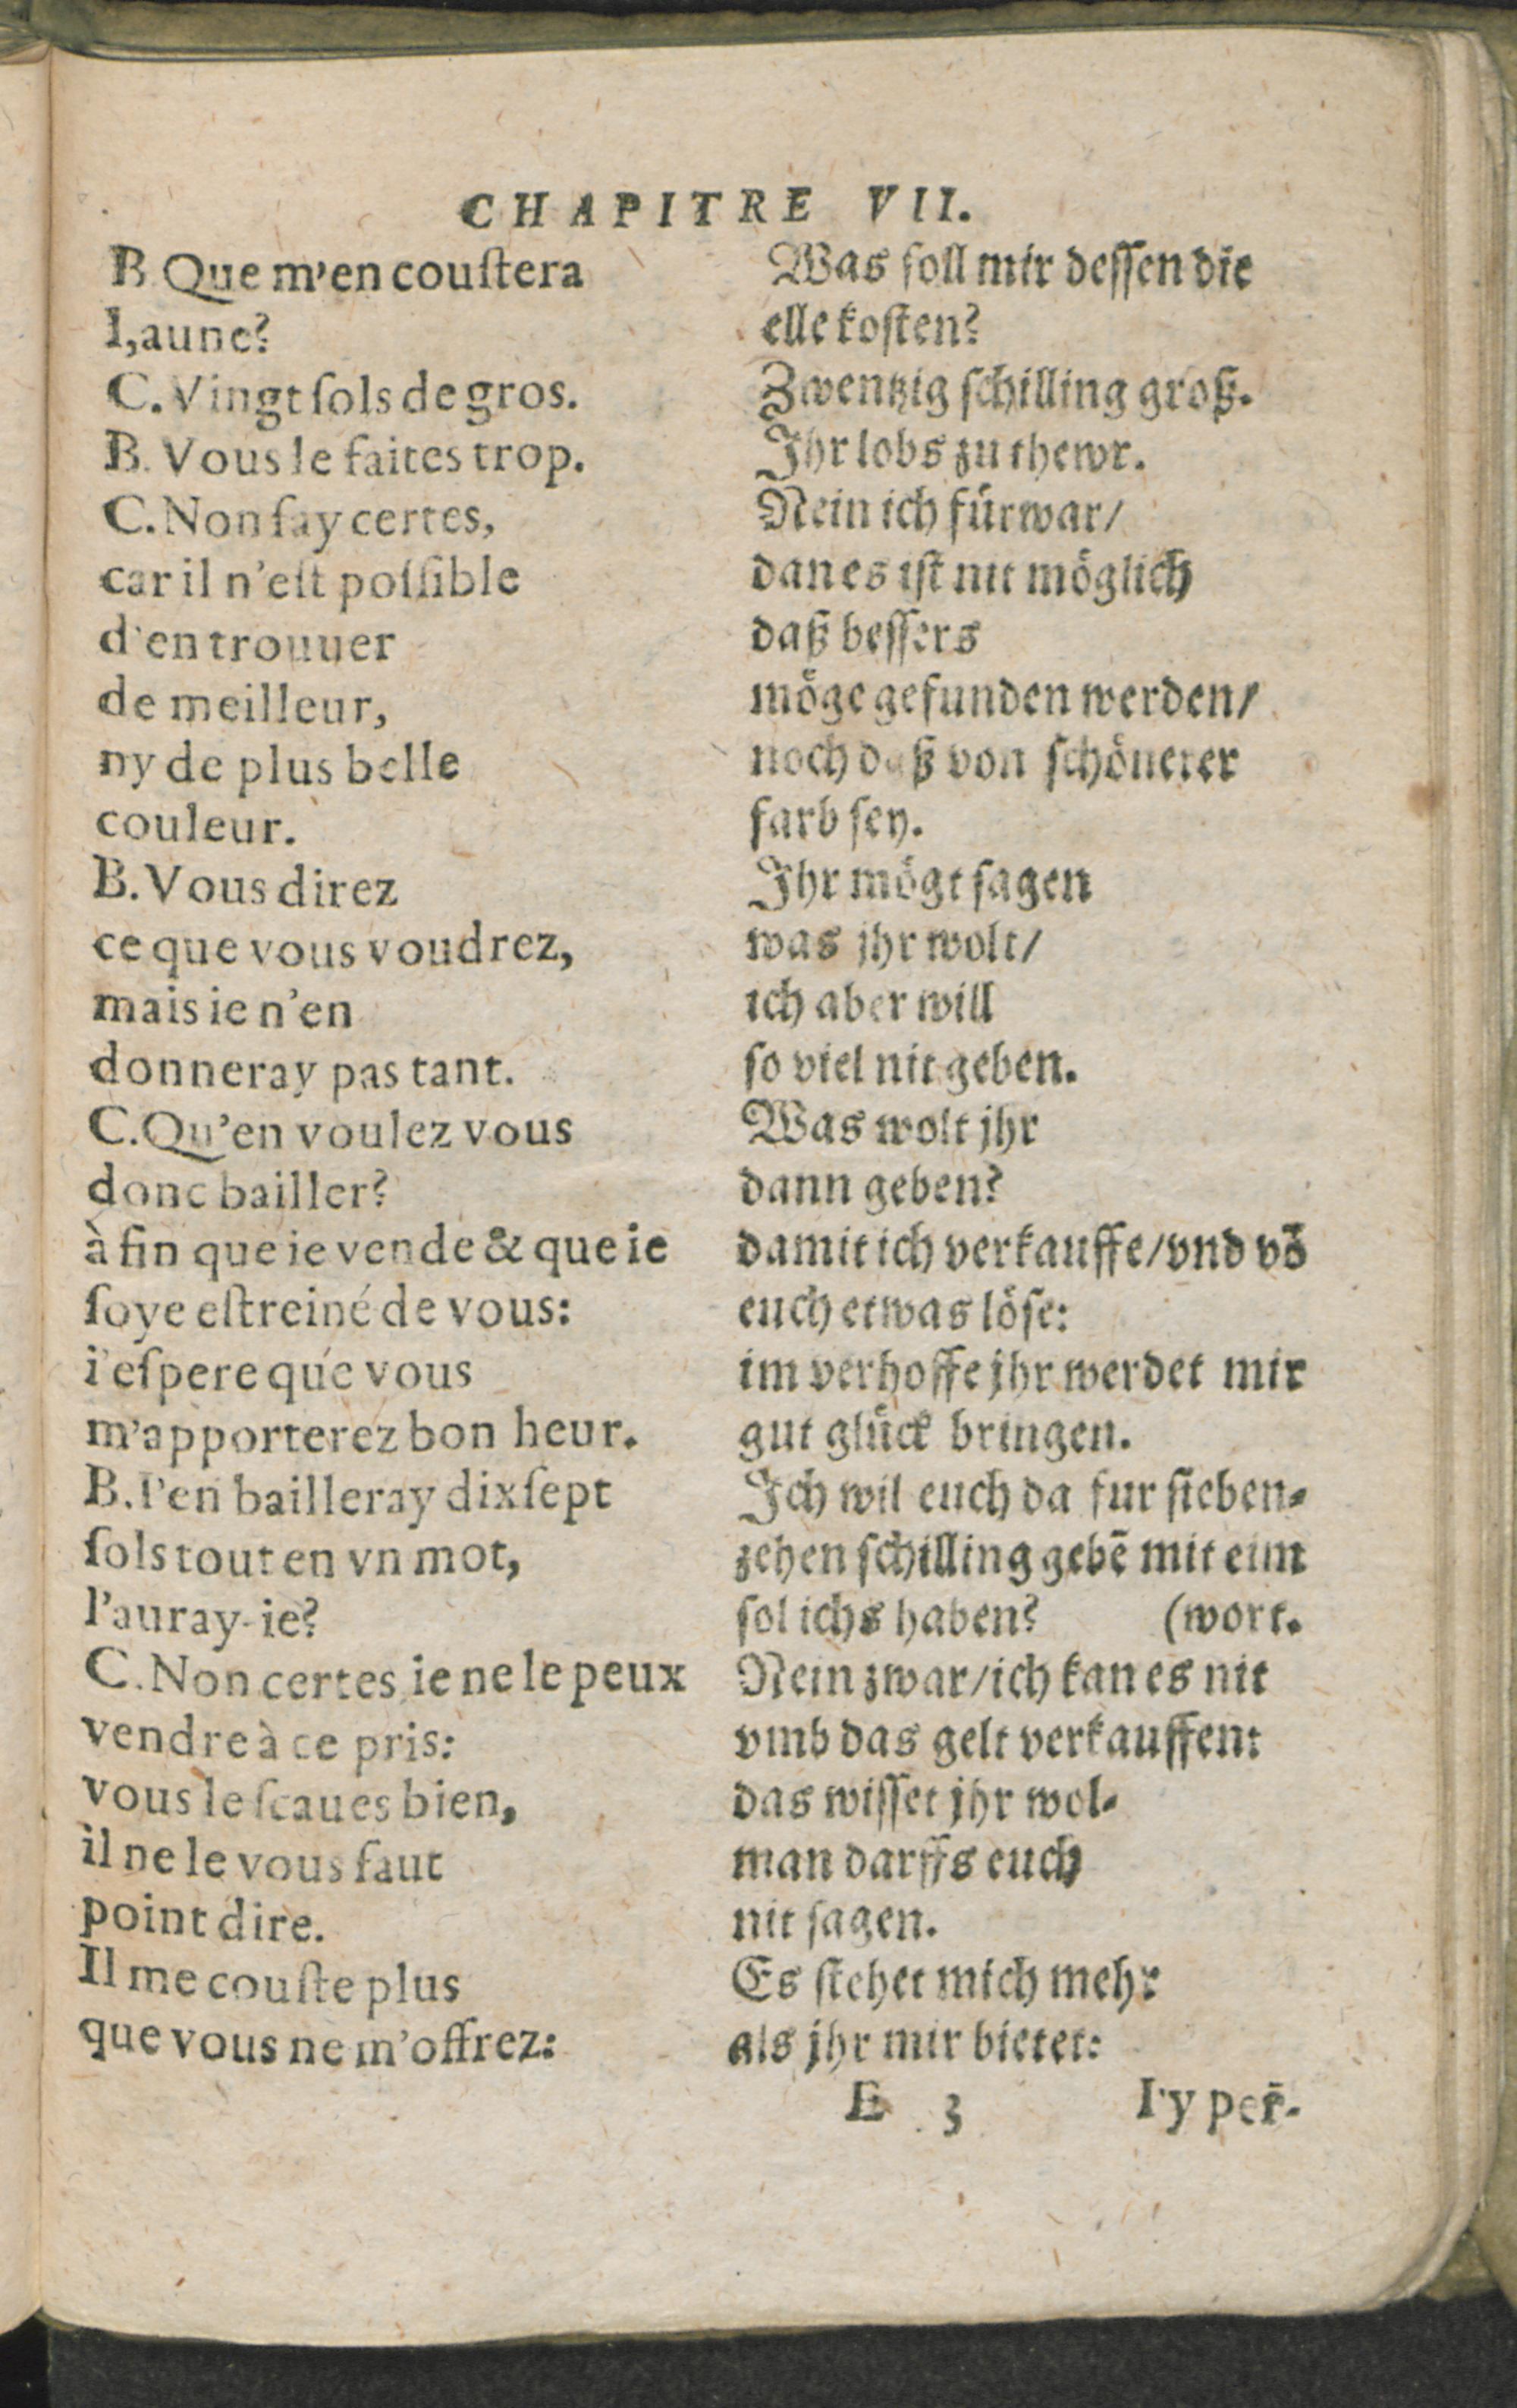 CHAPITRE VII.
B. Que m'en couſtera
l,aune?
C. Vingt ſols de gros.
B. Vous le faites trop.
C. Non fay certes,
car il n'eſt poſſible
d'en trouuer
de meilleur,
ny de plus belle
couleur.
B. Vous direz
ce que vous voudrez,
mais ie n'en
donneray pas tant.
C. Qu'en voulez vous
donc bailler?
à fin que ie vende & que ie
ſoye eſtreiné de vous:
i'eſpere que vous
m'apporterez bon heur.
B. I'en bailleray dixſept
ſols tout en vn mot,
l'auray-ie?
C. Non certes ie ne le peux
vendre à ce pris:
vous le ſcaues bien,
il ne le vous faut
point dire.
Il me couſte plus
que vous ne m'offrez:
Was ſoll mir deſſen die
elle koſten?
Zwentzig ſchilling groß.
Ihr lobs zu thewr.
Nein ich fürwar/
dan es iſt nit möglich
daß beſſers
möge gefunden werden/
noch daß von ſchönerer
farb ſey.
Ihr mögt ſagen
was jhr wolt/
ich aber will
ſo viel nit geben.
Was wolt jhr
dann geben?
damit ich verkauffe/vnd vō
euch etwas löſe:
im verhoffe jhr werdet mir
gut glück bringen.
Ich wil euch da fur ſieben-
zehen ſchilling gebē mit eim
ſol ichs haben? (wort.
Nein zwar/ich kan es nit
vmb das gelt verkauffen:
das wiſſet jhr wol-
man darffs euch
nit ſagen.
Es ſtehet mich mehr
als jhr mir bietet:
E 3 I'y per-